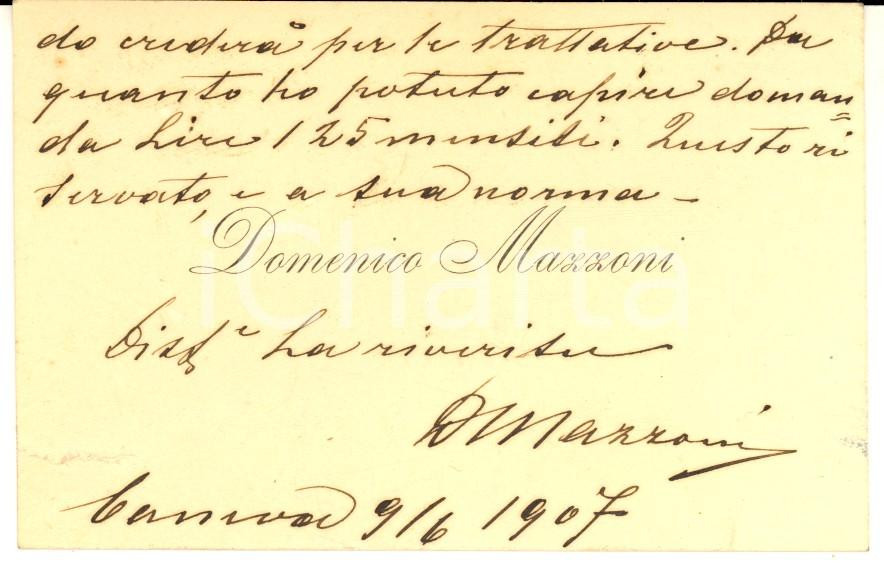 do crederà per le trattative. Da
quanto ho potuto capire doman=
da Lire 125 mensili. Questo ri
servato, e a sua norma —
Domenico Mazzoni
iCharta
Distte La riverisce
DMazzoni
Caneva 9/6 1907